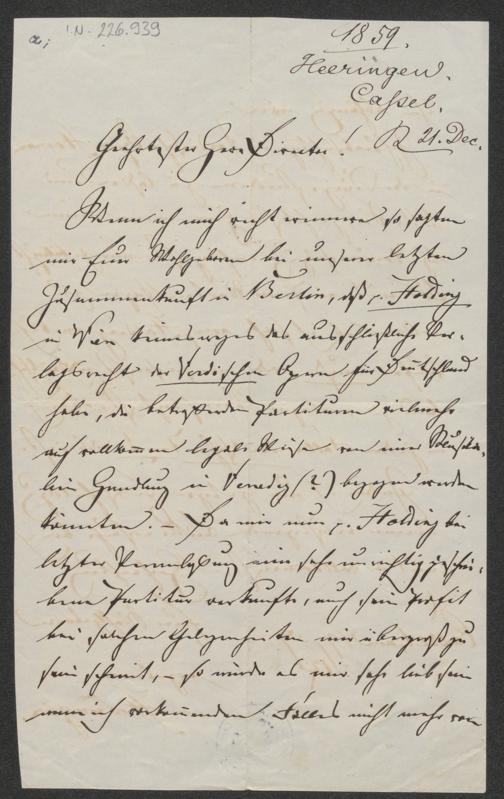 a; I.N. 226.939
1859.
Heeringen.
Cassel.
R 21. Dec.
Geehrtester Herr Director!
Wenn ich mich recht erinnere so sagten
mir Euer Wohlgeboren bei unserer letzten
Zusammenkunft in Berlin, daß p. Holding
in Wien keineswegs das ausschließliche Ver-
lagsrecht der Verdischen Opern für Deutschland
habe, die betreffenden Partituren vielmehr
auf vollkommen legale Weise von einer Musika-
lien Handlung in Venedig (?) bezogen werden
könnten. – Da mir nun p. Holding bei
letzter Veranlassung eine sehr unrichtig geschrie-
bene Partitur verkaufte, auch sein Profit
bei solchen Gelegenheiten mir übergroß zu
sein scheint, – so würde es mir sehr lieb sein
wenn ich vorkommenden Falles nicht mehr von